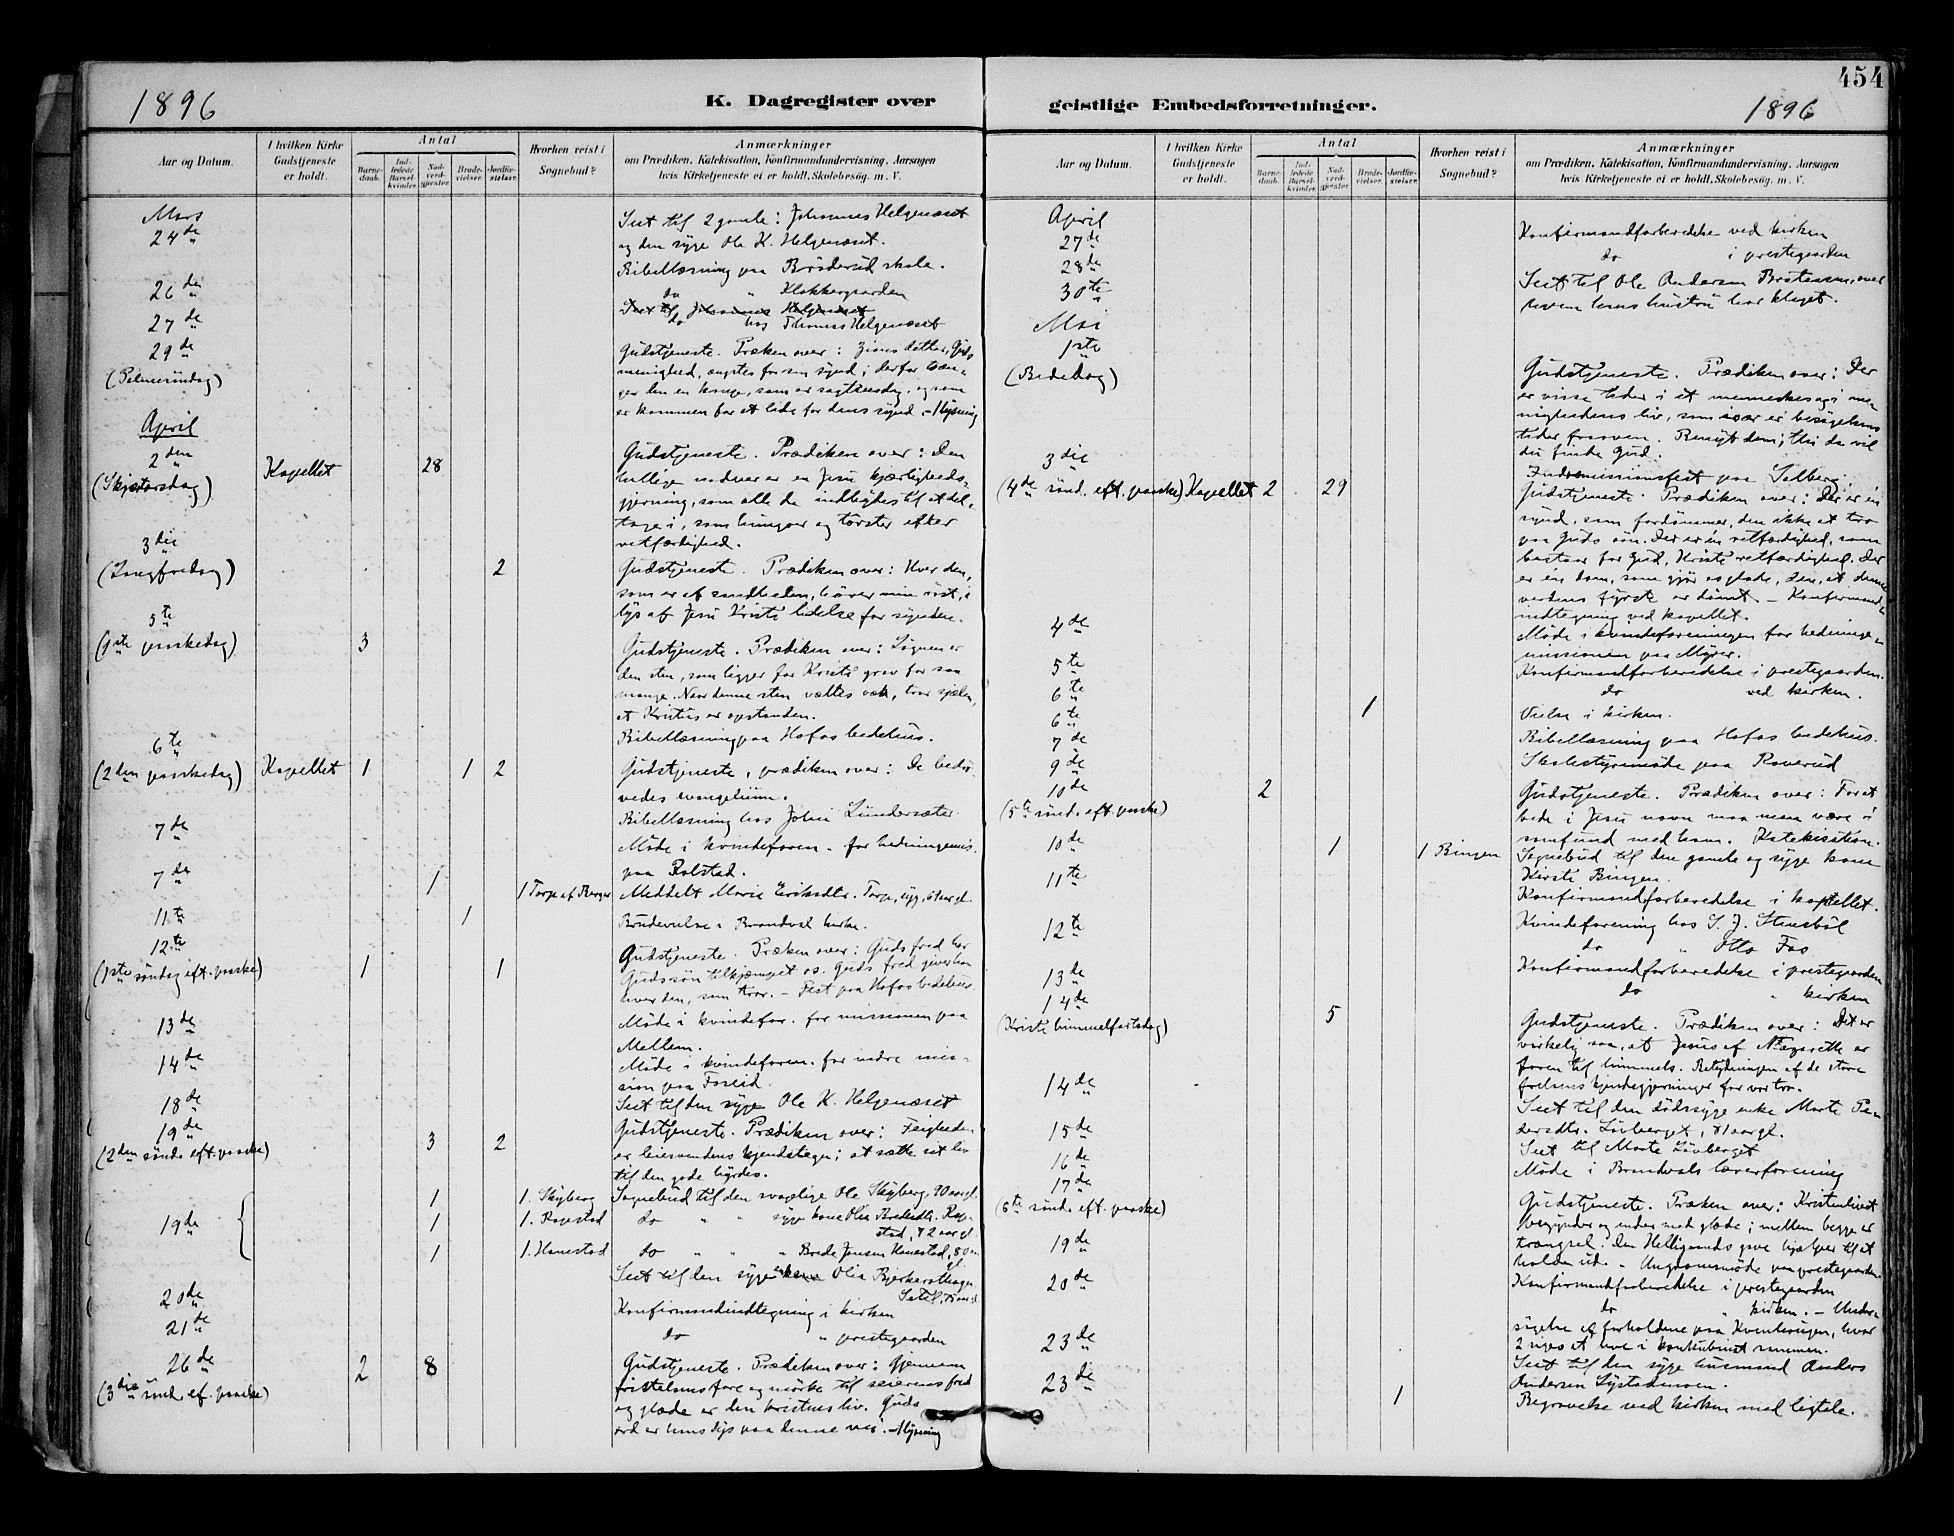 1896
K. Dagregister over
Aar og Datum.
I hvilken Kirke Gudstjeneste er holdt.
Antal
Barnedaab.
Indledede Barselkvinder.
Nadverdgjester.
Brudevielser.
Jordfæstelser.
Hvorhen reist i Sognebud?
Anmærkninger
om Prædiken, Katekisation, Konfirmandundervisning, Aarsagen
hvis Kirketjeneste ei er holdt, Skolebesøg, m. V.
Mars
24de Seet til 2 gamle: Johannes Helgenæset
og den syge Ole K. Helgenæset.
Bibellæsning paa Bröderud skole.
26de do " Klokkergaarden
Seet til Johannes Helgenæset
27de do hos Thomas Helgenæset
29de Gudstjeneste. Præken over: Zions datter, Guds
(Palmesøndag) menighed, ængstes for sin synd; derfor træn-
ger den en konge, som er sagtmodig, og som
er kommen for at lide for dens synd. - Lysning
April
2den Kapellet 28 Gudstjeneste. Prædiken over: Den
(Skjærtorsdag) hellige nadver er en Jesu kjærligheds-
gjerning, som alle de indbydes til at del-
tage i, som hungrer og tørster efter
retfærdighed.
3die
(Langfredag) 2 Gudstjeneste. Prædiken over: Hver den,
som er af sandheden, hører min röst, i
lys af Jesu Kristi lidelse for synden.
5te
(1ste paaskedag) 3 Gudstjeneste. Prædiken over: Løgnen er
den sten, som ligger for Kristi grav for saa
mange. Naar denne sten væltes væk, tror sjælen,
at Kristus er opstanden.
Bibellæsning paa Hofos bedehus.
6te
(2den paaskedag) Kapellet 1 1 2 Gudstjeneste, prædiken over: De bedrö-
vedes evangelium.
7de Bibellæsning hos Johs Lundersæter
Möde i kvindeforen. for hedningemis.
paa Rolstad.
7de 1 1 Torp af Berger Meddelt Marie Eriksdtr. Torp, syg, 61 aar gl.
11te 1 Brudevielse i Brandval kirke.
12te Gudstjeneste. Præken over: Guds fred har
(1ste søndag eft. paaske) 1 1 Guds søn tilkjæmpet os. Guds fred giver han
hver den, som tror. - Fest paa Hofos bedehus
13de Möde i kvindefor. for missionen paa
Mellem.
14de Möde i kvindeforen. for indre mis-
sion paa Foseid.
18de Seet til den syge Ole K. Helgenæset
19de Gudstjeneste. Prædiken over: Feigheden
(2den sönd. eft. paaske) 3 2 er leiesvendens kjendetegn; at sætte sit liv
til den gode hyrdes.
19de 1 1. Skyberg Sognebud til den svagelige Ole Skyberg, 90 aar gl.
1 1. Ropstad do " " syge kone Olia Bredesdtr. Rop-
stad, 72 aar gl.
1 1. Hanestad do " " " Brede Jonsen Hanestad, 80 aar gl.
20de Seet til den syge enke Olia Bjerkerothagen
Konfirmandindtegning i kirken
21de do " prestegaarden
26de 2 8 Gudstjeneste. Prædiken over: Gjennem
(3die sönd. ef. paaske) fristelsens fare og mörke til seierens fred
og glæde er den kristnes liv. Guds
ord er hans lys paa denne vei. - Lysning
454
geistlige Embedsforretninger.
1896
Aar og Datum.
I hvilken Kirke Gudstjeneste er holdt.
Antal
Barnedaab.
Indledede Barselkvinder.
Nadverdgjester.
Brudevielser.
Jordfæstelser.
Hvorhen reist i Sognebud?
Anmærkninger
om Prædiken, Katekisation, Konfirmandundervisning, Aarsagen
hvis Kirketjeneste ei er holdt, Skolebesøg, m. V.
April
27de Konfirmandforberedelse ved kirken
28de do i prestegaarden
30te Seet til Ole Andersen Bratmoen, over
hvem hans hustru har klaget.
Mai
1ste Gudstjeneste. Prædiken over: Der
(Bededag) er visse tider i et menneskes og i me-
nighedens liv, som især er besögelses
tider fra oven. Benyt dem; thi da vil
du finde Gud.
3die Indremissionsfest paa Solberg.
(4de sönd. eft. paaske) Kapellet 2 29 Gudstjeneste. Prædiken over: Der er én
synd, som fordömmer, den ikke at tro
paa Guds sön. Der er én retfærdighed, som
bestaar for Gud, Kristi retfærdighed. Der
er en dom, som gjör os glade, den, at denne
verdens fyrste er dömt. - Konfirmand-
indtegning ved kapellet.
4de Möde i kvindeforeningen for hedninge-
missionen paa Myrer.
5te Konfirmandforberedelse i prestegaarden.
6te do ved kirken.
6te 1 Vielse i kirken.
7de Bibellæsning paa Hofos bedehus.
9de Skolestyremöde paa Roverud
10de 2 Gudstjeneste. Prædiken over: For at
(5te sönd. eft. paaske) bede i Jesu navn maa man være i
samfund med ham. Katekisation.
10de 1 1 Bingen Sognebud til den gamle og syge kone
Kirsti Bingen.
11te Konfirmandforberedelse i kapellet.
12te Kvindeforening hos S. J. Stensböl
do " Otto Fos
13de Konfirmandforberedelse i prestegaarden
14de do " kirken
(Kristi himmelfartsdag) 5 Gudstjeneste. Prædiken over: Det er
virkelig saa, at Jesus af Nazareth er
faren til himmels. Betydningen af de store
frelsens kjendsgjerninger for vor tro.
14de Seet til den dödssyge enke Marte Pe-
dersdtr. Lövberget, 81 aar gl.
15de Seet til Marte Lövberget
16de Möde i Brandvals lærerforening
17de Gudstjeneste. Præken over: Kristenlivet
(6te sönd. eft. paaske) begynder og ender med glæde; mellem begge er
trængsel. Den Helligaands gave hjælper til at
holde ud. - Ungdomsmöde paa prestegaarden.
19de Konfirmandforberedelse i prestegaarden
20de do " kirken. - Under-
sögelse af forholdene paa Kventorpen, hvor
2 siges at leve i konkubinat sammen.
23de Seet til den syge husmand Anders
Andersen Lystadmoen.
23de 1 Begravelse ved kirken med ligtale.